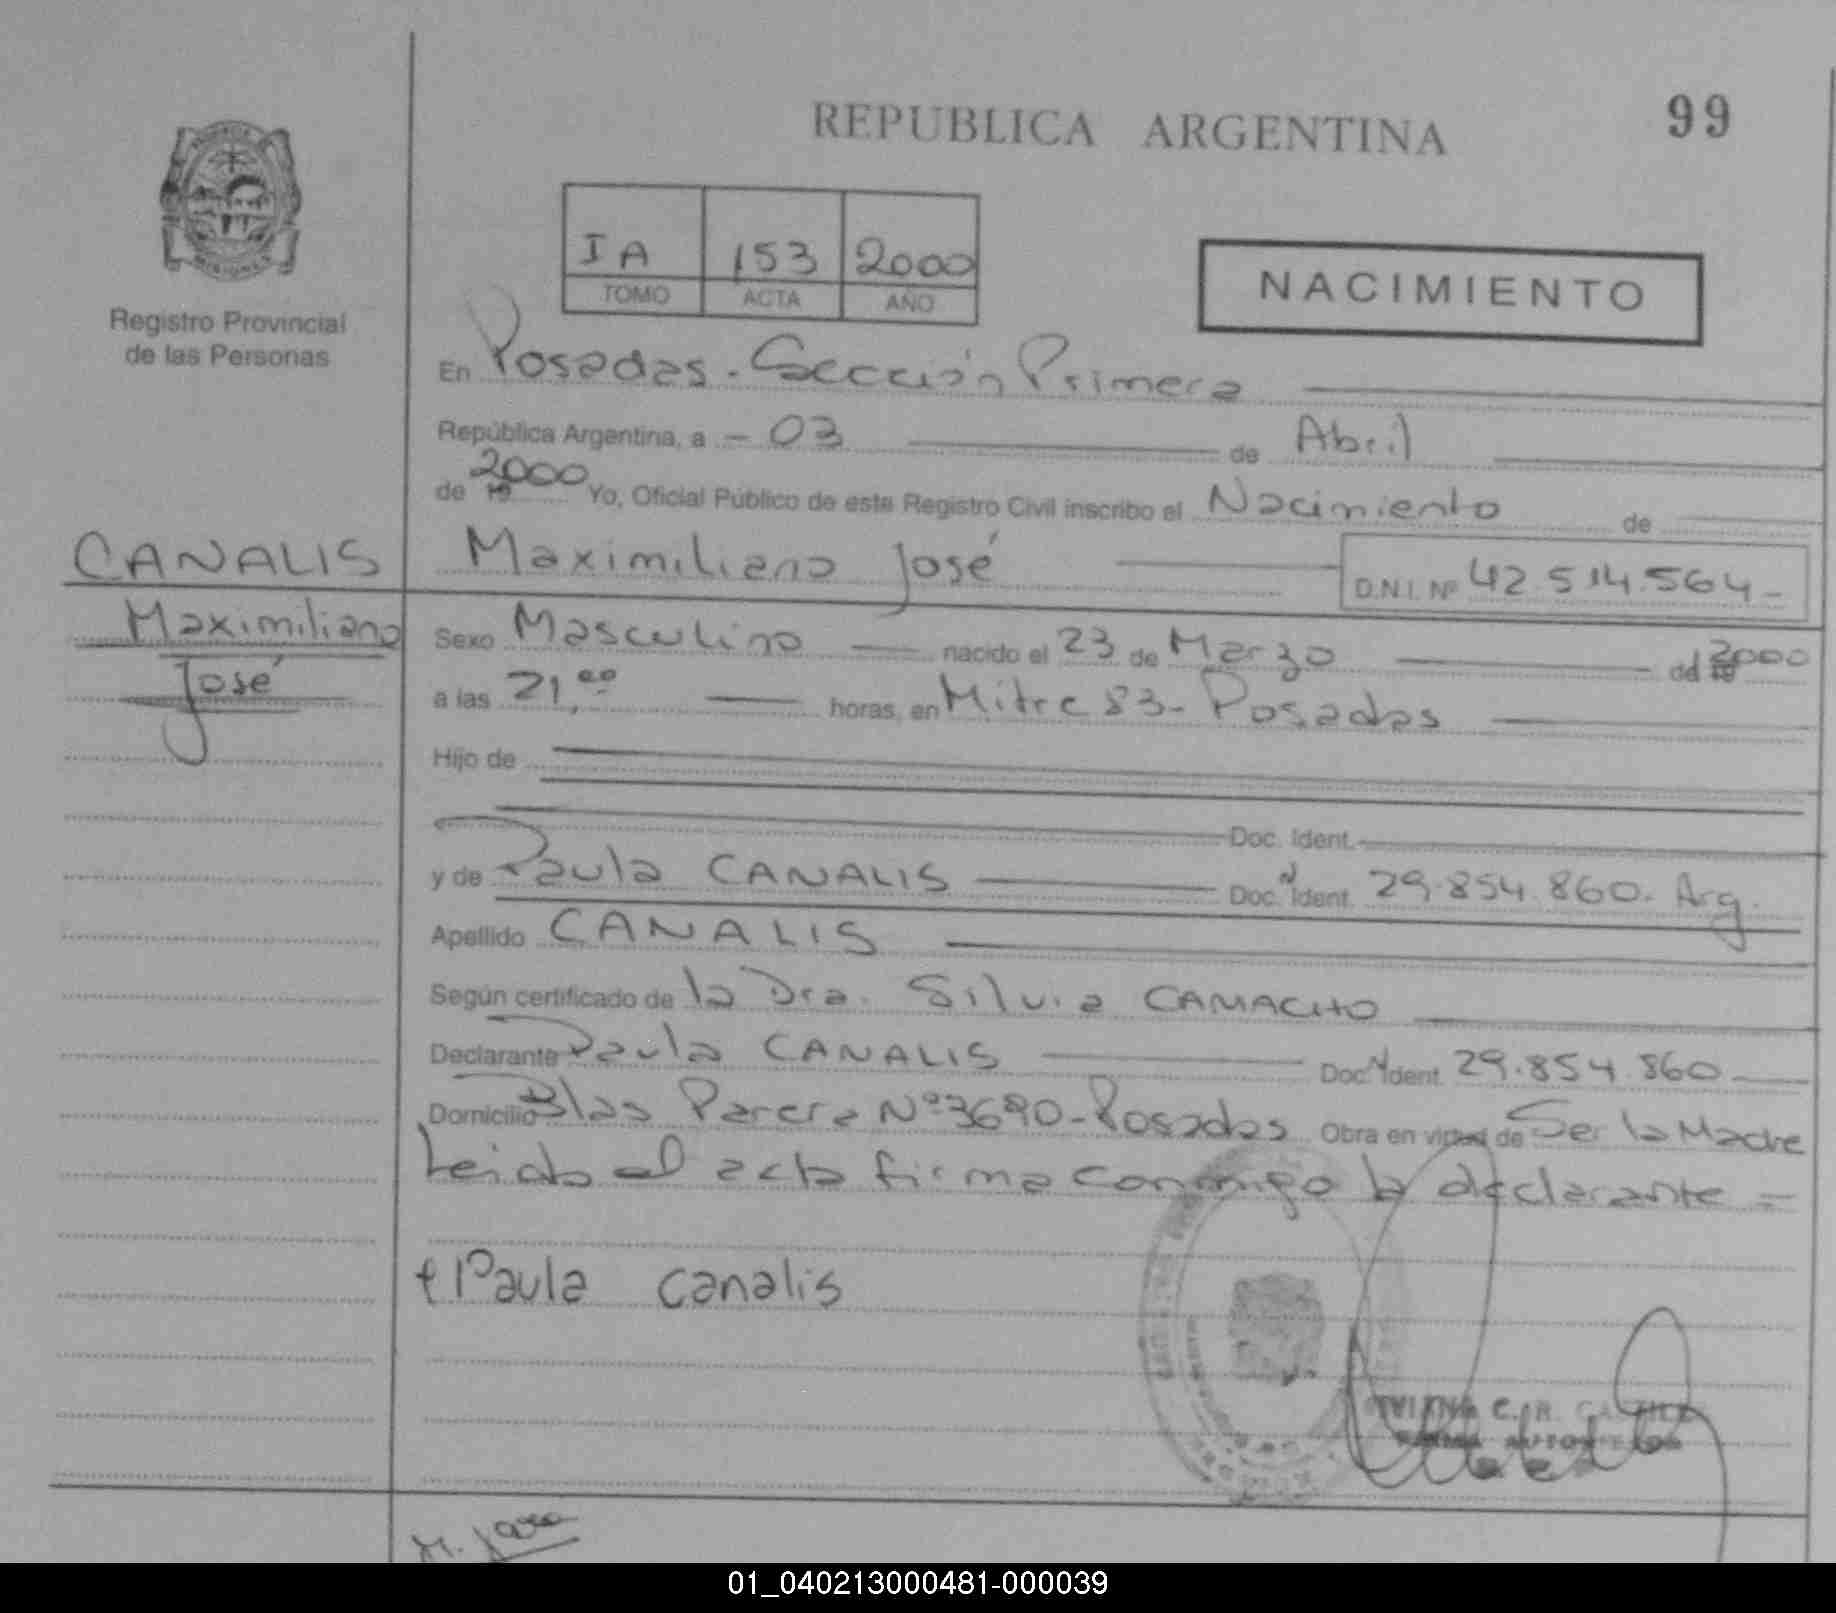 REPUBLICA ARGENTINA
99
PROVINCIA
MISIONES
Registro Provincial
de las Personas
IA 153 2000
TOMO ACTA AÑO
NACIMIENTO
En Posadas. Sección Primera
República Argentina, a - 03 de Abril
de 19 2000 Yo, Oficial Público de este Registro Civil inscribo el Nacimiento de
CANALIS
Maximiliano José
Maximiliano José D.N.I. Nº 42.514.564-
Sexo Masculino nacido el 23 de Marzo del 19 2000
a las 21,00 horas, en Mitre 83- Posadas
Hijo de
Doc. Ident.
y de Paula CANALIS Doc. N Ident. 29.854.860. Arg.
Apellido CANALIS
Según certificado de la Dra. Silvia CAMACHO
Declarante Paula CANALIS Doc. N Ident. 29.854.860
Domicilio Blas Parera Nº 3690-Posadas Obra en virtud de Ser la Madre
Leida el acta firma conmigo la declarante =
Paula canalis
C. R.
01_040213000481-000039